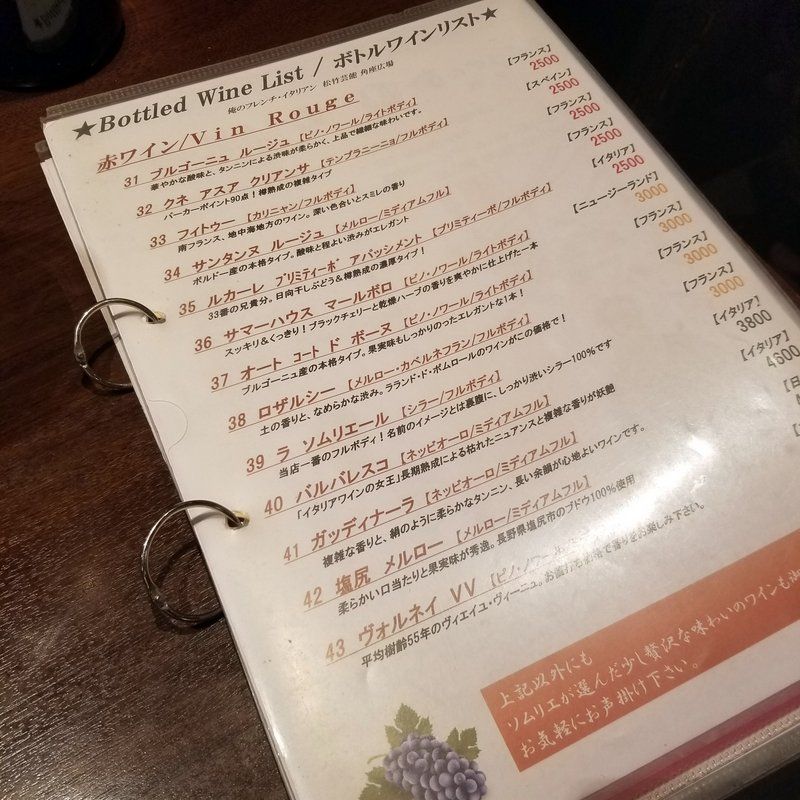 ★Bottled Wine List / ボトルワインリスト★
俺のフレンチ・イタリアン 松竹芸能 角座広場
赤ワイン/Vin Rouge
31 ブルゴーニュ ルージュ【ピノ・ノワール/ライトボディ】 【フランス】 2500
華やかな酸味と、タンニンによる渋味が柔らかく、上品で繊細な味わいです。
32 クネ アスア クリアンサ【テンプラニーニョ/フルボディ】 【スペイン】 2500
パーカーポイント90点!樽熟成の複雑タイプ
33 フィトゥー【カリニャン/フルボディ】 【フランス】 2500
南フランス、地中海地方のワイン。深い色合いとスミレの香り
34 サンタンヌ ルージュ【メルロー/ミディアムフル】 【フランス】 2500
ボルドー産の本格タイプ。酸味と程よい渋みがエレガント
35 ルカーレ プリミティーボ アパッシメント【プリミティーボ/フルボディ】 【イタリア】 2500
33番の兄貴分。日向干しぶどう&樽熟成の濃厚タイプ!
36 サマーハウス マールボロ【ピノ・ノワール/ライトボディ】 【ニュージーランド】 3000
スッキリ&くっきり!ブラックチェリーと乾燥ハーブの香りを爽やかに仕上げた一本
37 オート コート ド ボーヌ【ピノ・ノワール/ライトボディ】 【フランス】 3000
ブルゴーニュ産の本格タイプ。果実味もしっかりのったエレガントな1本!
38 ロザルシー【メルロー・カベルネフラン/フルボディ】 【フランス】 3000
土の香りと、なめらかな渋み。ラランド・ド・ポムロールのワインがこの価格で!
39 ラ ソムリエール【シラー/フルボディ】 【フランス】 3000
当店一番のフルボディ!名前のイメージとは裏腹に、しっかり渋いシラー100%です
40 バルバレスコ【ネッビオーロ/ミディアムフル】 【イタリア】 3800
「イタリアワインの女王」長期熟成による枯れたニュアンスと複雑な香りが妖艶
41 ガッディナーラ【ネッビオーロ/ミディアムフル】 【イタリア】 4600
複雑な香りと、絹のように柔らかなタンニン、長い余韻が心地よいワインです。
42 塩尻 メルロー【メルロー/ミディアムフル】 【日
柔らかい口当たりと果実味が秀逸。長野県塩尻市のブドウ100%使用
43 ヴォルネイ VV【ピノ・ノワール
平均樹齢55年のヴィエイユ・ヴィーニュ。お値打ち価格で香りをお楽しみ下さい。
上記以外にも
ソムリエが選んだ少し贅沢な味わいのワインも
お気軽にお声掛け下さい。